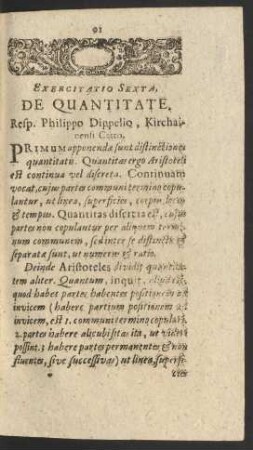 91
EXERCITATIO SEXTA,
DE QUANTITATE,
Resp. Philippo Dippelio, Kirchai-
nensi Catto.
PRIMUM opponenda sunt distinctiones
quantitatu. Quantitas ergo Aristoteli
est continua vel discreta. Continuam
vocat, cujus partes communi termino copu-
lantur, ut linea, superficies, corpus, locus
& tempus. Quantitas discreta est, cujus
partes non copulantur per aliquem termi-
num communem, sed inter se distinctæ &
separatæ sunt, ut numerus & ratio.
Deinde Aristoteles dividit quantita-
tem aliter. Quantum, inquit, aliud est,
quod habet partes habentes positionem ad
invicem (habere partium positionem ad
invicem, est 1. communi termino copulari,
2. partes habere alicubi sitas ita, ut videri
possint. 3 habere partes permanentes & non
fluentes, sive successivas) ut linea, superfi-